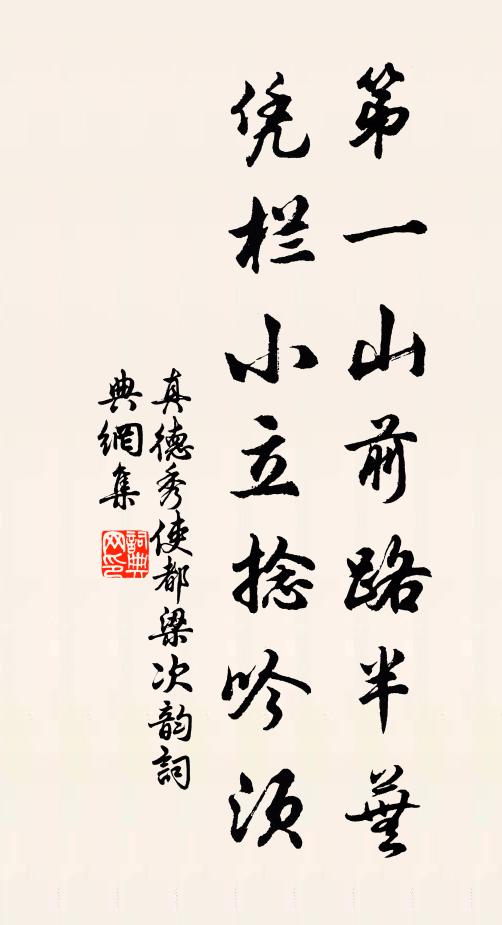 第一山前路半蕪
凭栏小立捻吟须
真德秀使都梁次韵詞
典網集
詞典网印